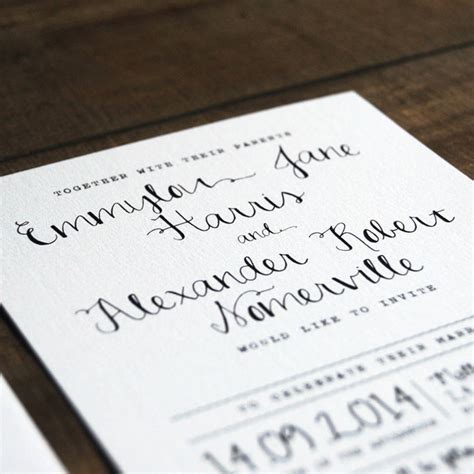 TOGETHER WITH THEIR PARENTS
Emmylou Jane
Harris
and
Alexander Robert
Nomerville
WOULD LIKE TO INVITE
TO CELEBRATE THEIR MAR
14 09 2014